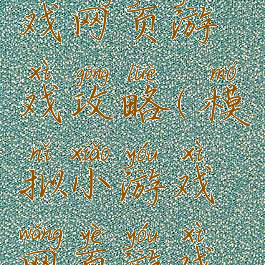 戏网页游
xì gōng lüè mó
戏攻略(模
nǐ xiǎo yóu xì
拟小游戏
wǎng yè yóu xì
网页游戏